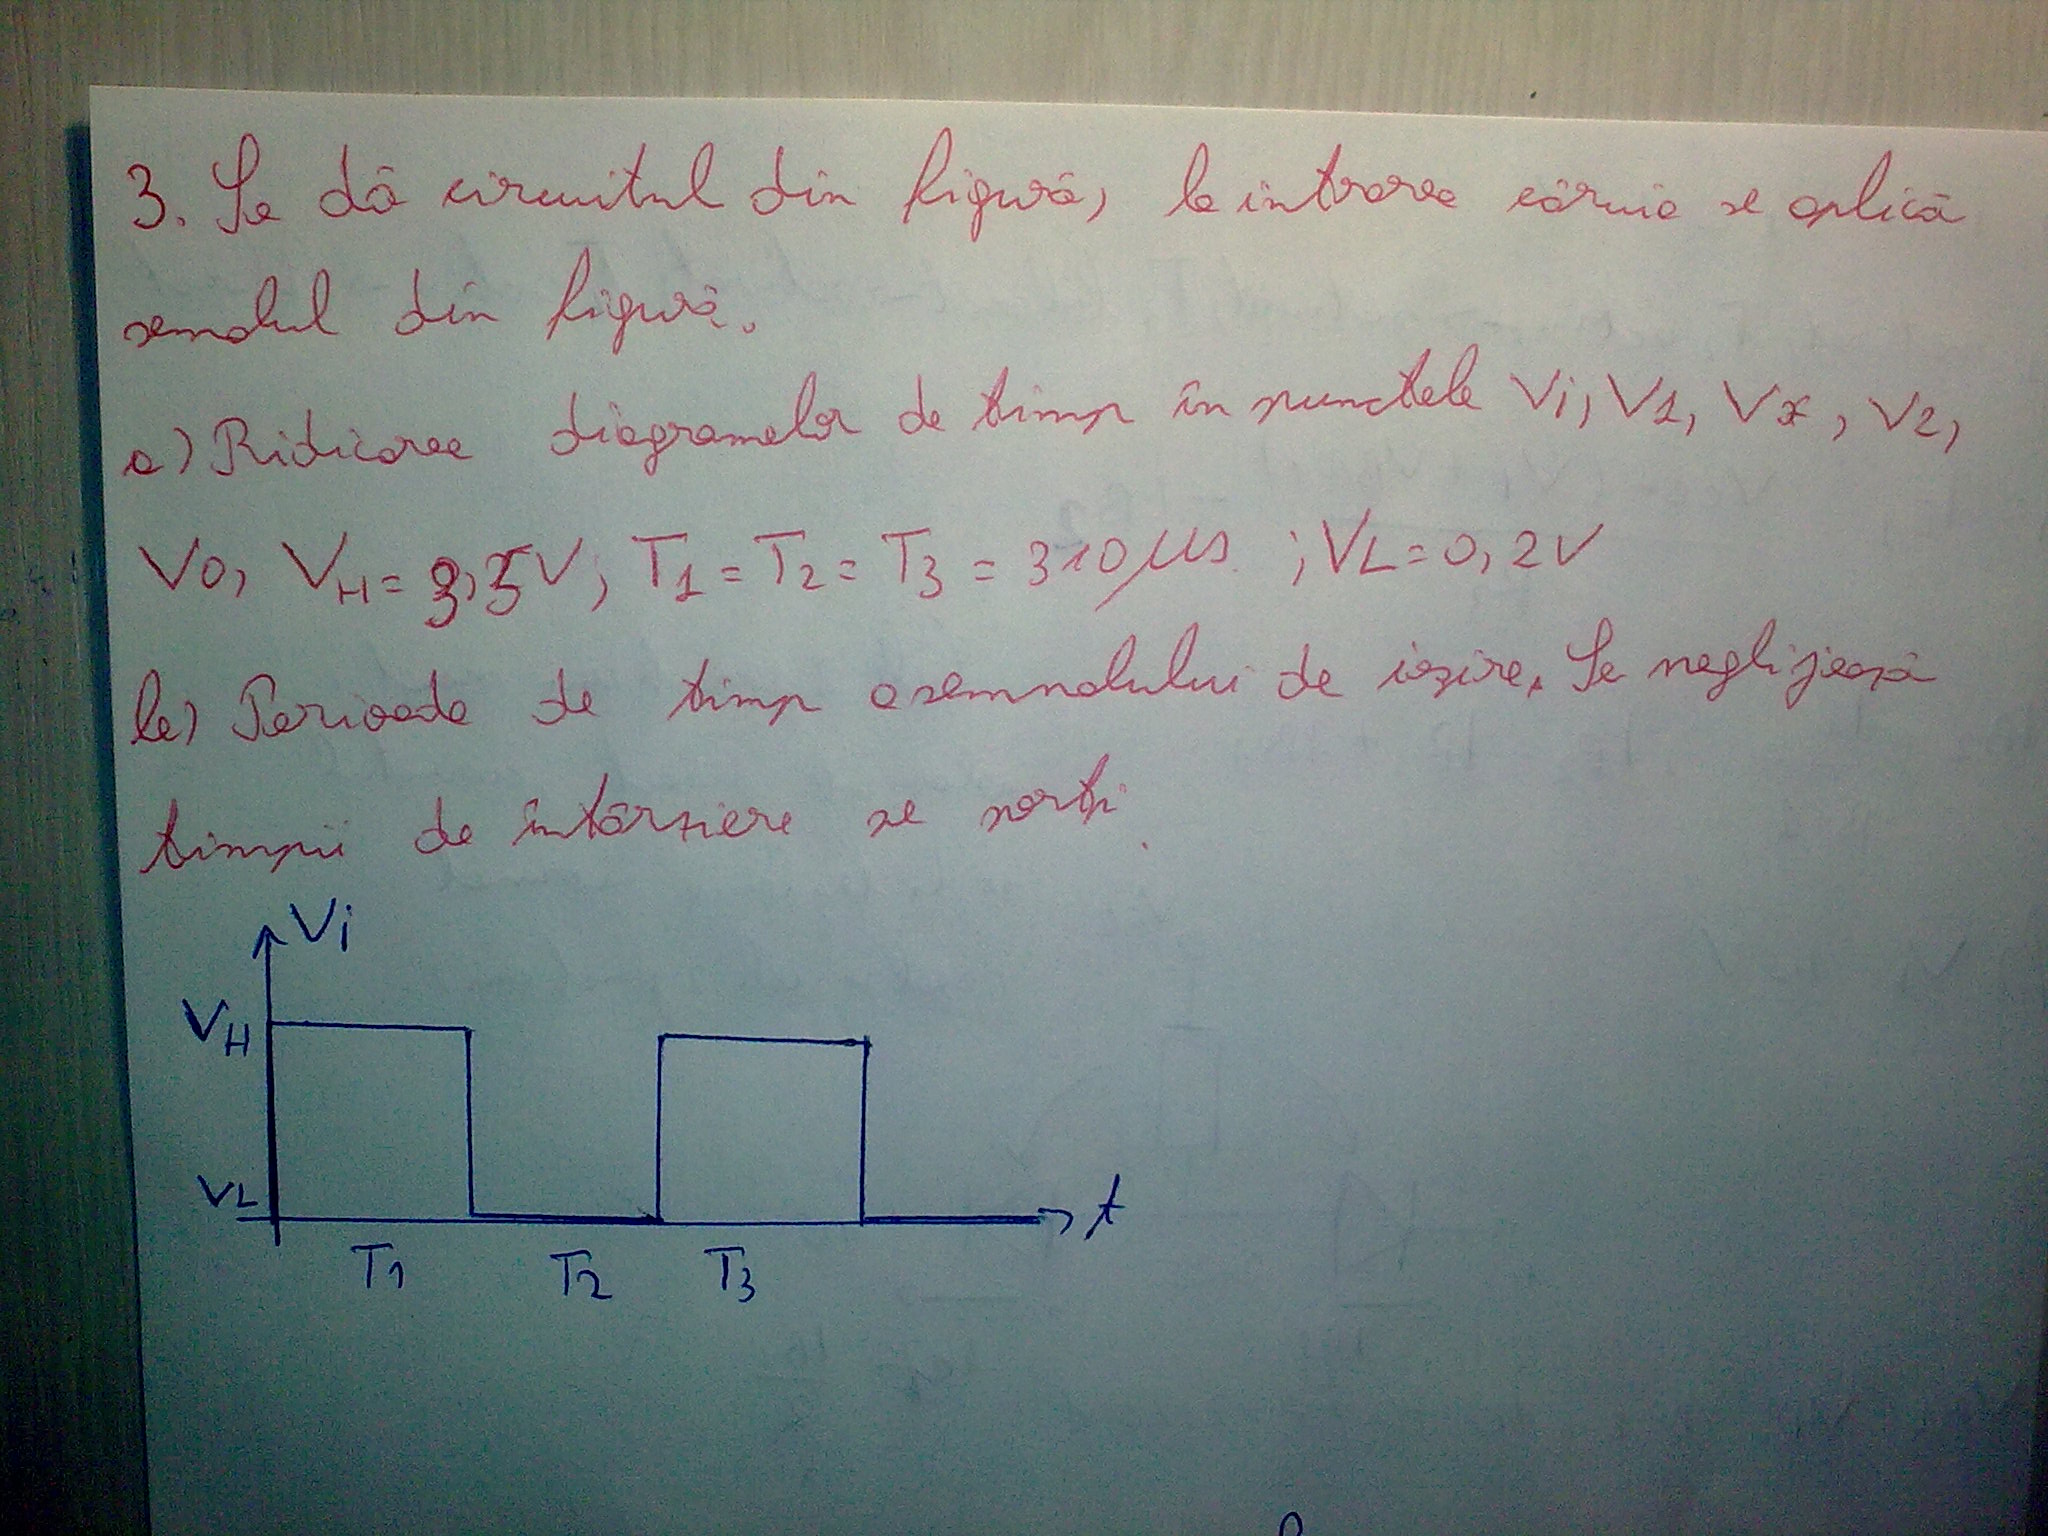 3. Se dă circuitul din figură, la intrarea căruia se aplică
semnalul din figură.
a) Ridicarea diagramelor de timp în punctele Vi, V1, Vx, V2,
V0, VH = 3,5V; T1 = T2 = T3 = 310 µs ; VL = 0,2V
b) Perioada de timp a semnalului de ieșire. Se neglijează
timpii de întârziere pe porți.
Vi
VH
VL
t
T1 T2 T3